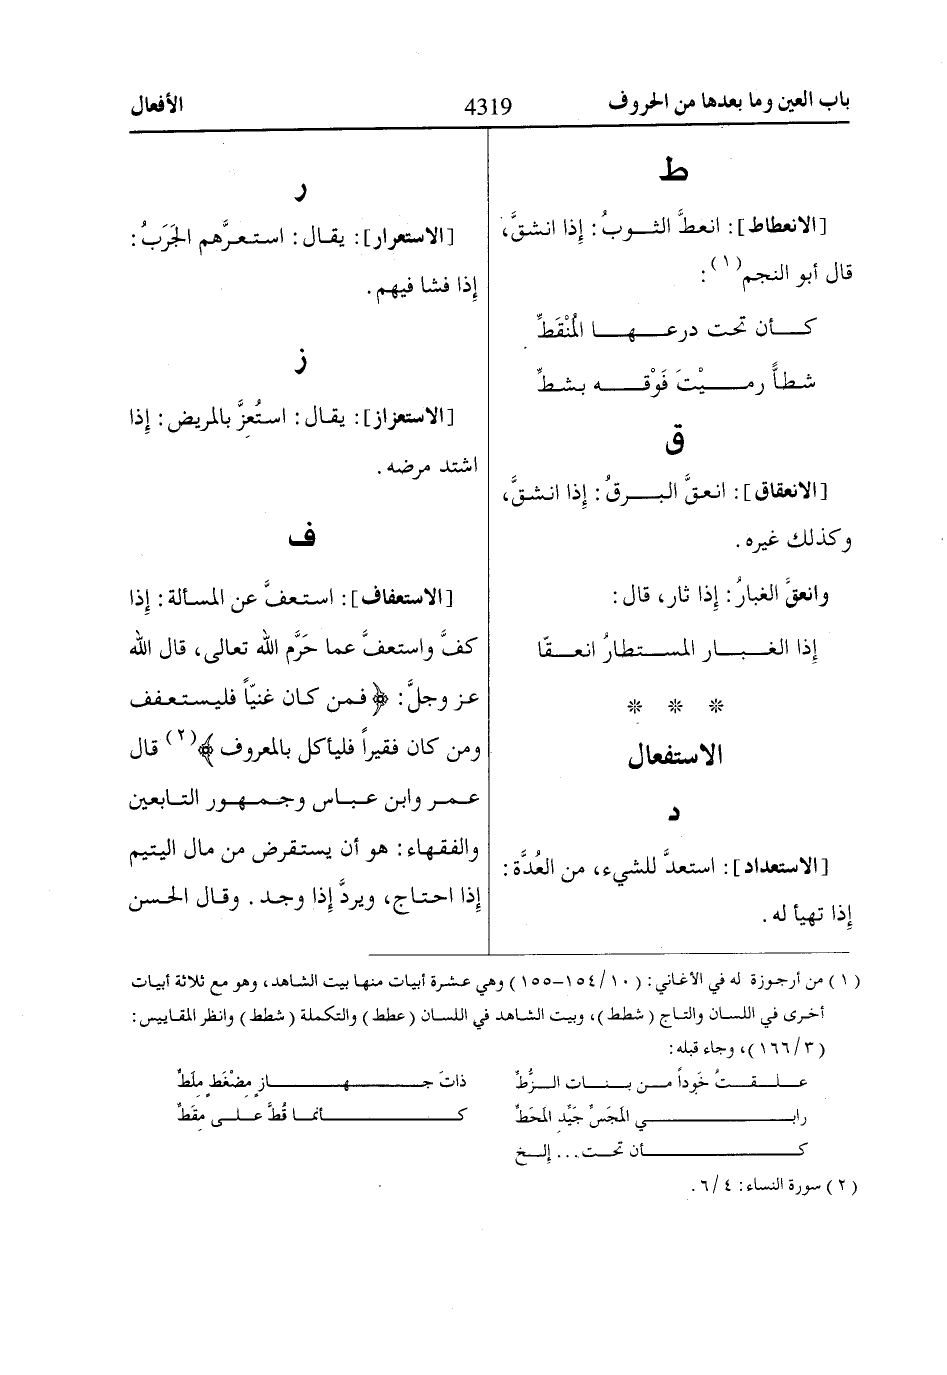 باب العين وما بعدها من الحروف 4319 الأفعال
ط
[الانعطاط]: انعطَّ الثوبُ: إذا انشقَّ،
قال أبو النجم(١):
كأن تحت درعها المُنْقَطِّ
شطاًّ رميْتَ فَوْقَه بشطِّ
ق
[الانعقاق]: انعقَّ البرقُ: إذا انشقَّ،
وكذلك غيره.
وانعقَّ الغبارُ: إذا ثار، قال:
إذا الغبار المستطارُ انعقّا
* * *
الاستفعال
د
[الاستعداد]: استعدَّ للشيء، من العُدَّة:
إذا تهيأ له.
ر
[الاستعرار]: يقال: استعرَّهم الجَرَبُ:
إذا فشا فيهم.
ز
[الاستعزاز]: يقال: استُعزَّ بالمريض: إذا
اشتد مرضه.
ف
[الاستعفاف]: استعفَّ عن المسألة: إذا
كفَّ واستعفَّ عما حَرَّم الله تعالى، قال الله
عز وجلَّ: ﴿فمن كان غنيّاً فليستعفف
ومن كان فقيراً فليأكل بالمعروف﴾(٢) قال
عمر وابن عباس وجمهور التابعين
والفقهاء: هو أن يستقرض من مال اليتيم
إذا احتاج، ويردَّ إذا وجد. وقال الحسن
(١) من أرجوزة له في الأغاني: (١٠/١٥٤-١٥٥) وهي عشرة أبيات منها بيت الشاهد، وهو مع ثلاثة أبيات
أخرى في اللسان والتاج (شطط)، وبيت الشاهد في اللسان (عطط) والتكملة (شطط) وانظر المقاييس:
(٣/١٦٦)، وجاء قبله:
علقتُ خَوداً من بنات الزُّطِّ ذاتَ جهازٍ مِضْغَطٍ مِلَطِّ
رابي المجَسِّ جَيِّدِ المَحَطِّ كأنما قُطَّ على مِقَطِّ
كأن تحت... إلخ
(٢) سورة النساء: ٤/٦.